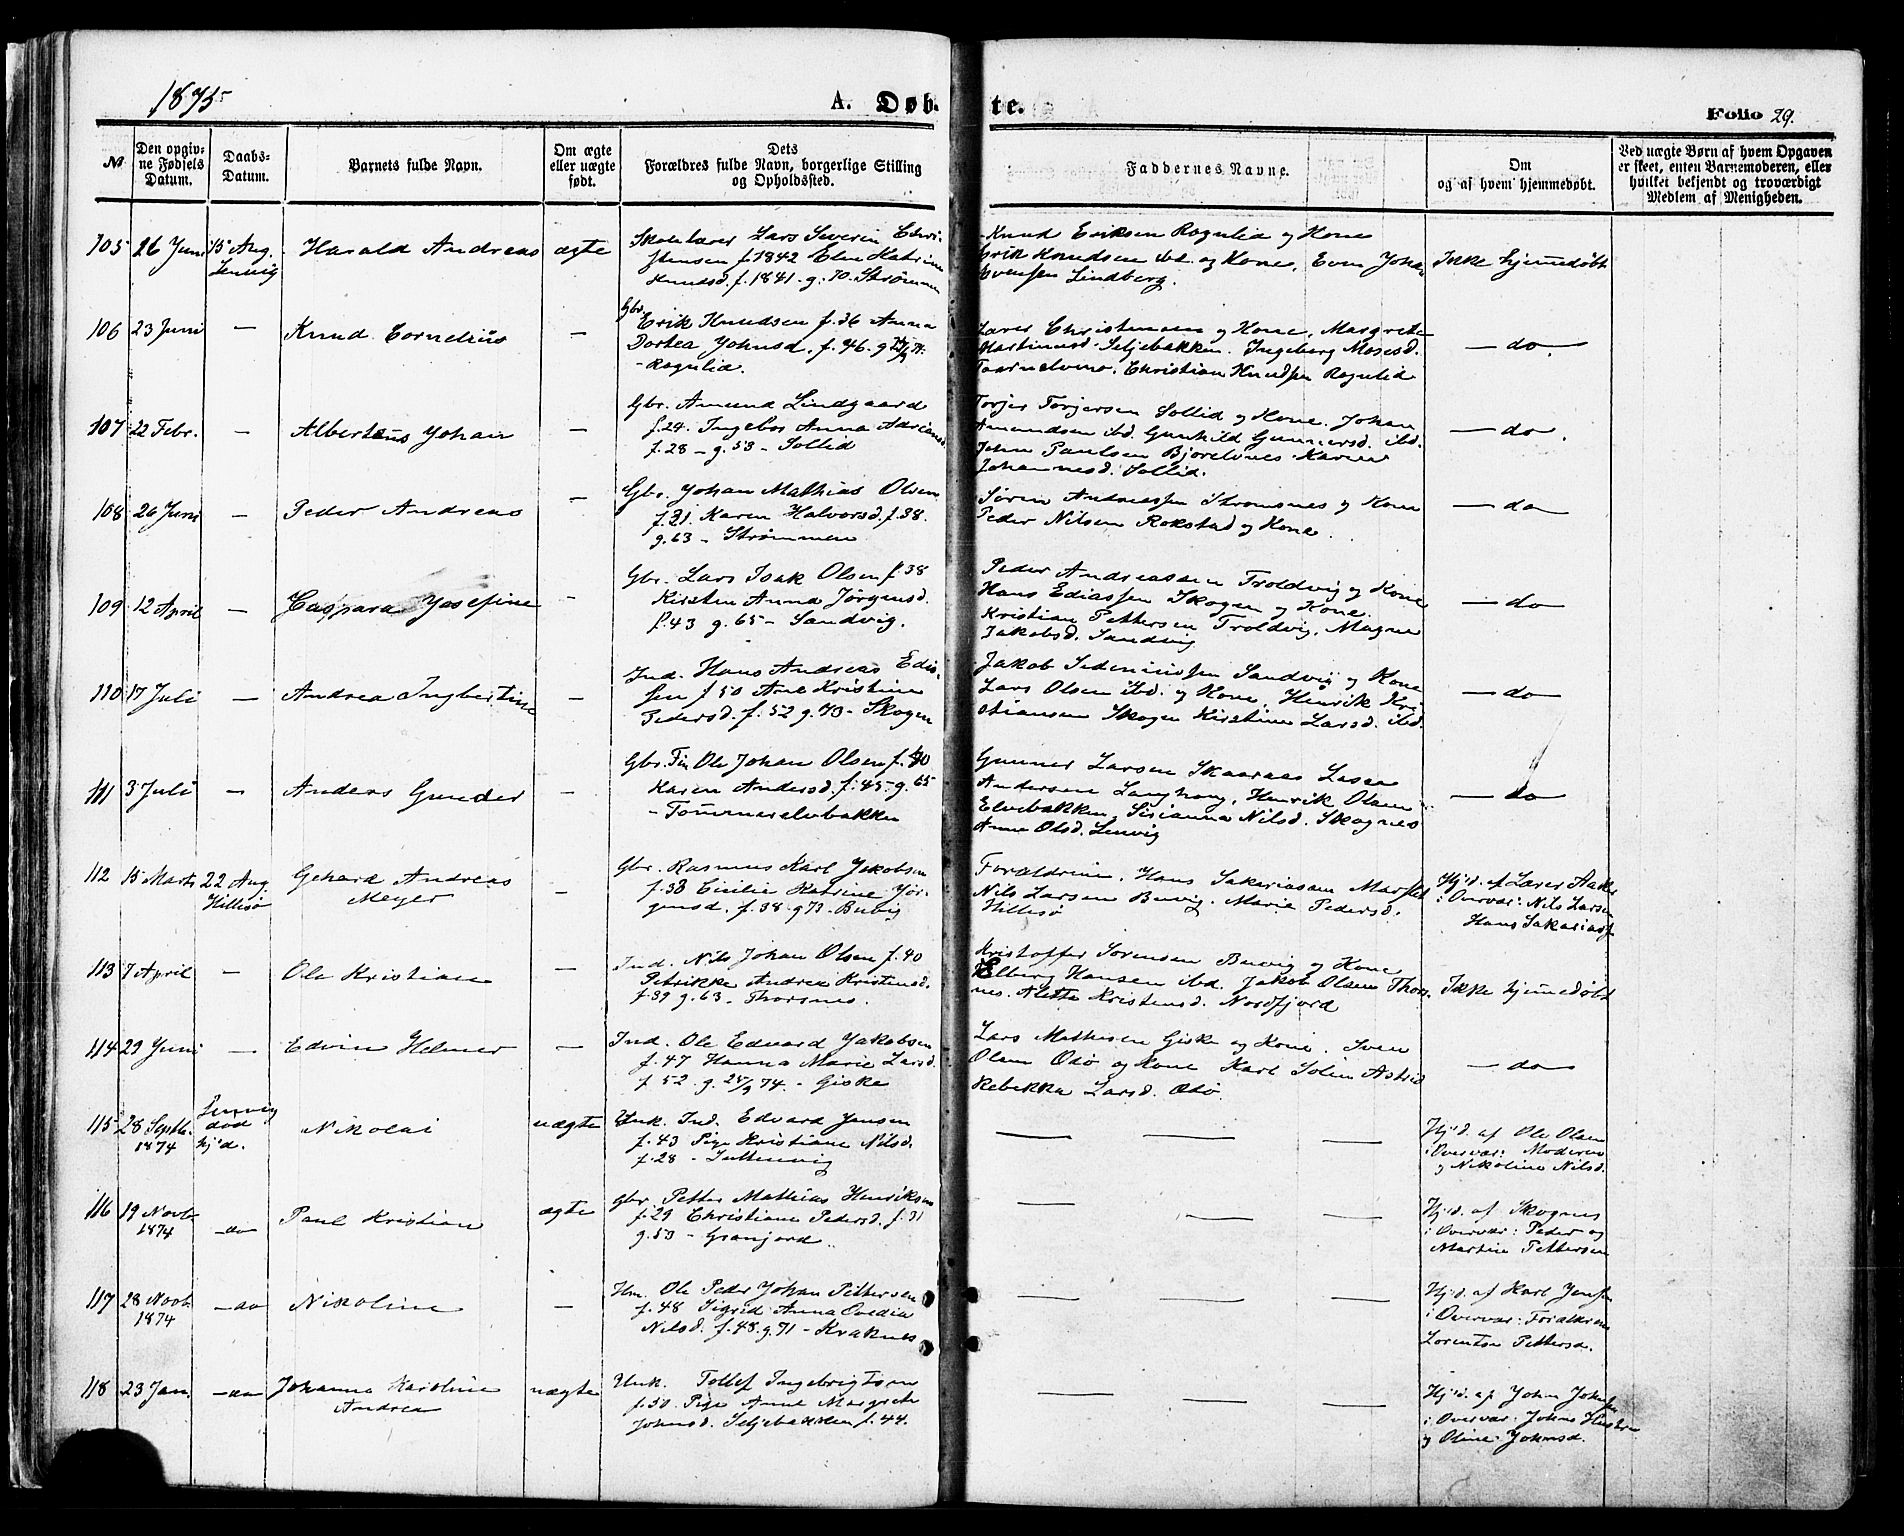 1875
A. Døb-
te.
Folio 29.
№
Den opgiv-
ne Fødsels
Datum.
Daabs-
Datum.
Barnets fulde Navn.
Om ægte
eller uægte
født.
Dets
Forældres fulde Navn, borgerlige Stilling
og Opholdssted.
Faddernes Navne.
Om
og af hvem hjemmedøbt.
Ved uægte Børn af hvem Opgaven
er skeet, enten Barnemoderen, eller
hvilket bekjendt og troværdigt
Medlem af Menigheden.
105 26 Juni 15 Aug. Harald Andreas ægte
Lenvig
Skolelærer Lars Severin Chri-
stensen f. 1842 Elen Katrine
Knudsd. f. 1841. g. 70. Strømmen
Knud Eriksen Rognlid og Kone
Erik Knudsen ibd. og Kone, Even Johan
Evensen Lindberg.
Ikke hjemmedøbt
106 23 Juni — Knud Cornelius —
Gbr.
Erik Knudsen f. 36 Anna
Dortea Johnsd. f. 46. g.
- Rognlid.
Lærer Christensen og Kone, Margrete
Martinusd. Seljebakken. Ingeborg Mosesd.
Taarnelvmo. Christian Knudsen Rognlid
— do.
107 22 Febr. — Albertus Johan —
Gbr. Amund Lindgaard
f. 24. Ingebor Anna Adriansd.
f. 28 - g. 53 - Sollid
Torjer Torjersen Sollid og Kone. Johan
Amundsen ibd. Gunhild Gunnersd. ibd.
John Paulsen Bjorelvnes Karen
Johannesd. Sollid.
— do.
108 26 Juni — Peder Andreas —
Gbr. Johan Mathias Olsen
f. 31. Karen Halvorsd. f. 38.
g. 63 - Strømmen
Søren Andreassen Strømsnes og Kone
Peder Nilsen Rokstad og Kone.
— do —
109 12 April — Caspara Josefine —
Gbr. Lars Isak Olsen f. 38
Kirsten Anna Jørgensd.
f. 43 g. 65 - Sandvig.
Peder Andreassen Troldvig og Kone
Hans Ediassen Skogen og Kone.
Kristian Pettersen Troldvig, Magna
Jakobsd. Sandvig
— do
110 17 Juli — Andrea Ingbertine —
Ind. Hans Andreas Edis-
sen f. 50 Ane Kristine
Pedersd. f. 52 g. 73 - Skogen
Jakob Sandvig og Kone
Lars Olsen ibd. og Kone, Henrik Kri-
stiansen Skogen Kirstine Larsd. ibd.
— do —
111 3 Juli — Anders Gunder —
Gbr. Fin Ole Johan Olsen f. 40
Karen Andersd. f. 45 - g. 65
- Tømmerelvbakken
Gunner Larsen Skaaraas Lasse
Andersen Langhaug, Henrik Olsen
Elvebakken, Sirianna Nilsd. Skognes
Anne Olsd. Lenvig
— do
112 15 Marts 22 Aug. Gehard Andreas —
Hillesø Meyer
Gbr. Rasmus Karl Jakobsen
f. 38 Cecilie Katrine Jør-
gensd. f. 38. g. 73. Buvig
Forældrene. Hans Sakariassen
Nils Larsen Buvig. Marie Pedersd.
Hillesø
Hj'd. af Lærer
i Overvær: Nils Larsen
Hans Sakariass.
113 7 April — Ole Kristian —
Ind. Nils Johan Olsen f. 40
Petrikke Andrea Kristensd.
f. 39 g. 63. - Thorsnes.
Kristoffer Sørensen Buvig og Kone
Elberg Hansen ibd. Jakob Olsen Thors-
nes. Aletta Kristensd. Nordfjord
Ikke hjemmedøbt
114 29 Juni — Edvin Helmer —
Ind. Ole Edvard Jakobsen
f. 47 Hanna Marie Larsd.
f. 52. g. 74. - Giske
Lars Mathisen Giske og Kone. Sven
Olsen Otdø og Kone Karl Astrid
Rebekka Larsd. Otdø.
— do —
115 28 Septb. Lenvig Nikolai uægte
1874 død
hj'd.
Unk. Ind. Edvard Jensen
f. 43 Pige Kristiane Nilsd.
f. 28 -
— — —
Hj'd. af Ole Olsen
i Overvær: Moderen
og Nikoline Nilsd.
116 19 Novb. — do Paul Kristian ægte
1874
Gbr. Petter Mathias Henriksen
f. 29 Christiane Pedersd. f. 31
g. 53 - Grønjord
— — —
Hj'd. af Skognes
i Overvær: Peder og
Martin Pettersen
117 28 Novb. — do Nikoline —
1874
Hm. Ole Peder Johan Pettersen
f. 48 Sigrid Anna Ovedia
Nilsd. f. 48. g. 71 - Kraknes
— — —
Hj'd. af Karl Jensen
i Overvær: Forældrene
Lorentse Pettersd.
118 23 Jan. — do Johanna Karoline uægte
Andrea
Unk. Tollef Ingebrigtsen
f. 50. Pige Anne Margrete
Johnsd. Seljebakken f. 44.
— — —
Hj'd. af John Johnsen
i Overvær: Johns Hustru
og Oline Johnsd.